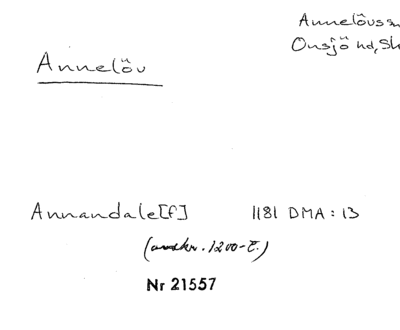 Annelövs sn
Onsjö hd, Sk
Annelöv
Annandale[f] 1181 DMA: 13
(avskr. 1200-t.)
Nr 21557